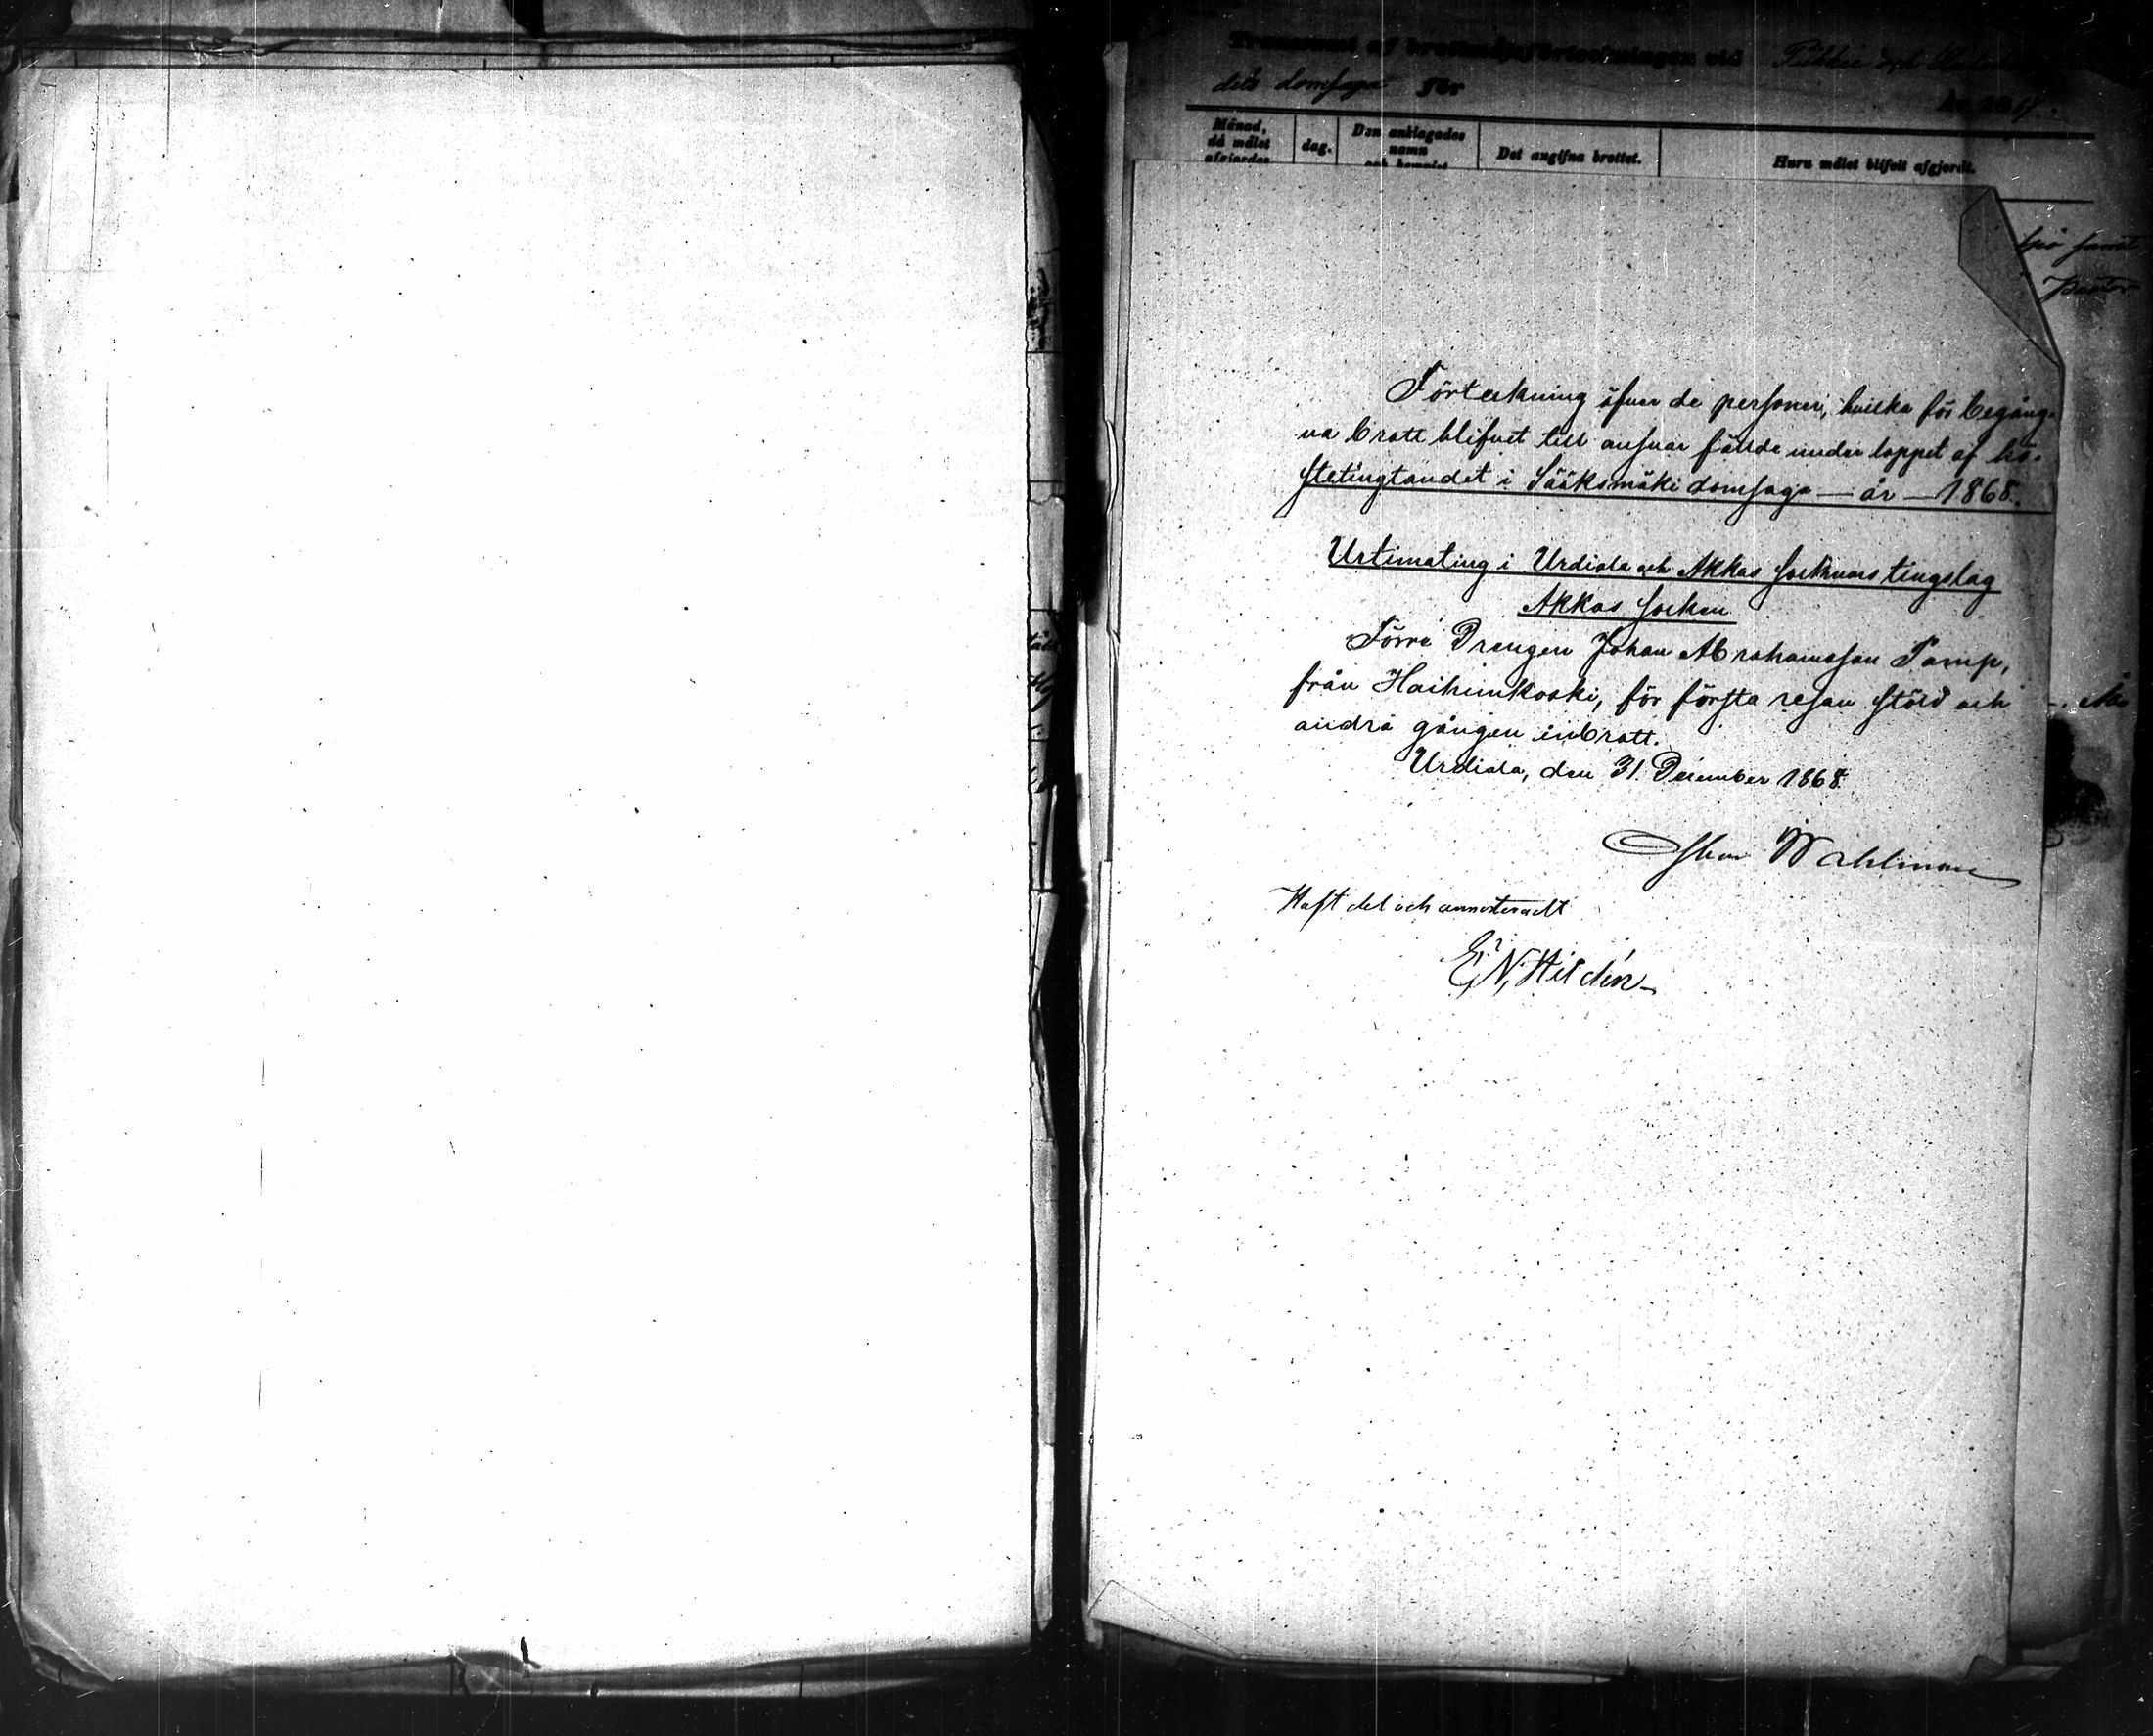 Transsumt af brottmålsförteckningen vid
dels domsaga för År 18
Månad, då målet afgjordes
dag.
Den anklagades namn och hemvist
Det angifna brottet.
Huru målet blifvit afgjordt.
Förteckning öfver de personer, hvilka för begång-
na brott blifvit till ansvar fällde under loppet af hö-
stetingtandet i Sääksmäki domsaga — år — 1868.
Urtimating i Urdiala och Akkas sockens tingslag
Akkas socken
Förre Drengen Johan Abrahamsson Pamp,
från Haihunkoski, för första resan stöld och
andra gången inbrott.
Urdiala, den 31. December 1868.
Wahlman
Haft del och annoteradt
E, N, Hildén